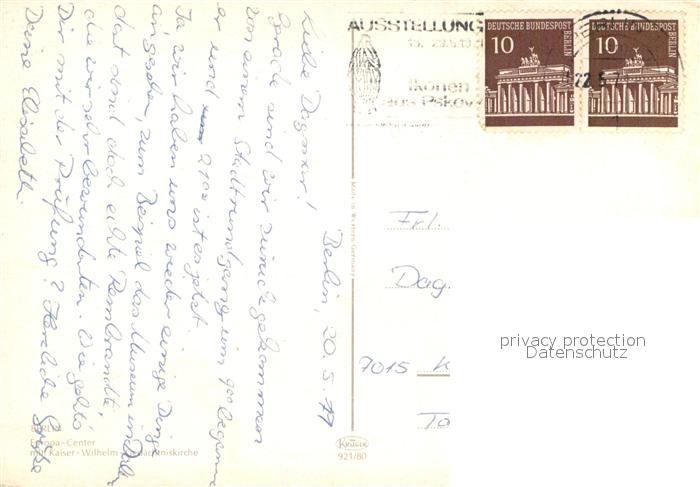 Berlin, 20.5.77
Liebe Dagmar!
Grade sind wir zurückgekommen
von einem Stadtrundgang um 9ºº begann
er und 21ºº ist es jetzt.
Ja wir haben uns wieder einige Dinge
angesehen, zum Beispiel das Museum in Dahlem
dort sind doch echte Rembrandts,
die wir sehr bewunderten. Wie geht's
Dir mit der Prüfung? Herzliche Grüße
Deine Elisabeth.
BERLIN
Europa-Center
mit Kaiser-Wilhelm-Gedächtniskirche
Made in Western Germany
Krüger
921/80
AUSSTELLUNG
Ikonen
aus Pskow
DEUTSCHE BUNDESPOST
BERLIN
10
DEUTSCHE BUNDESPOST
BERLIN
10
22.5.7
Frl.
Dag.
7015 K
To
privacy protection
Datenschutz